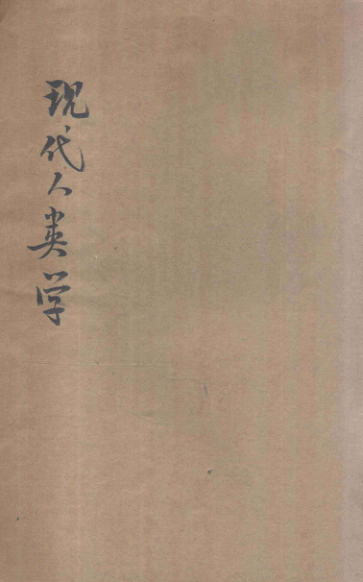 现代人类学